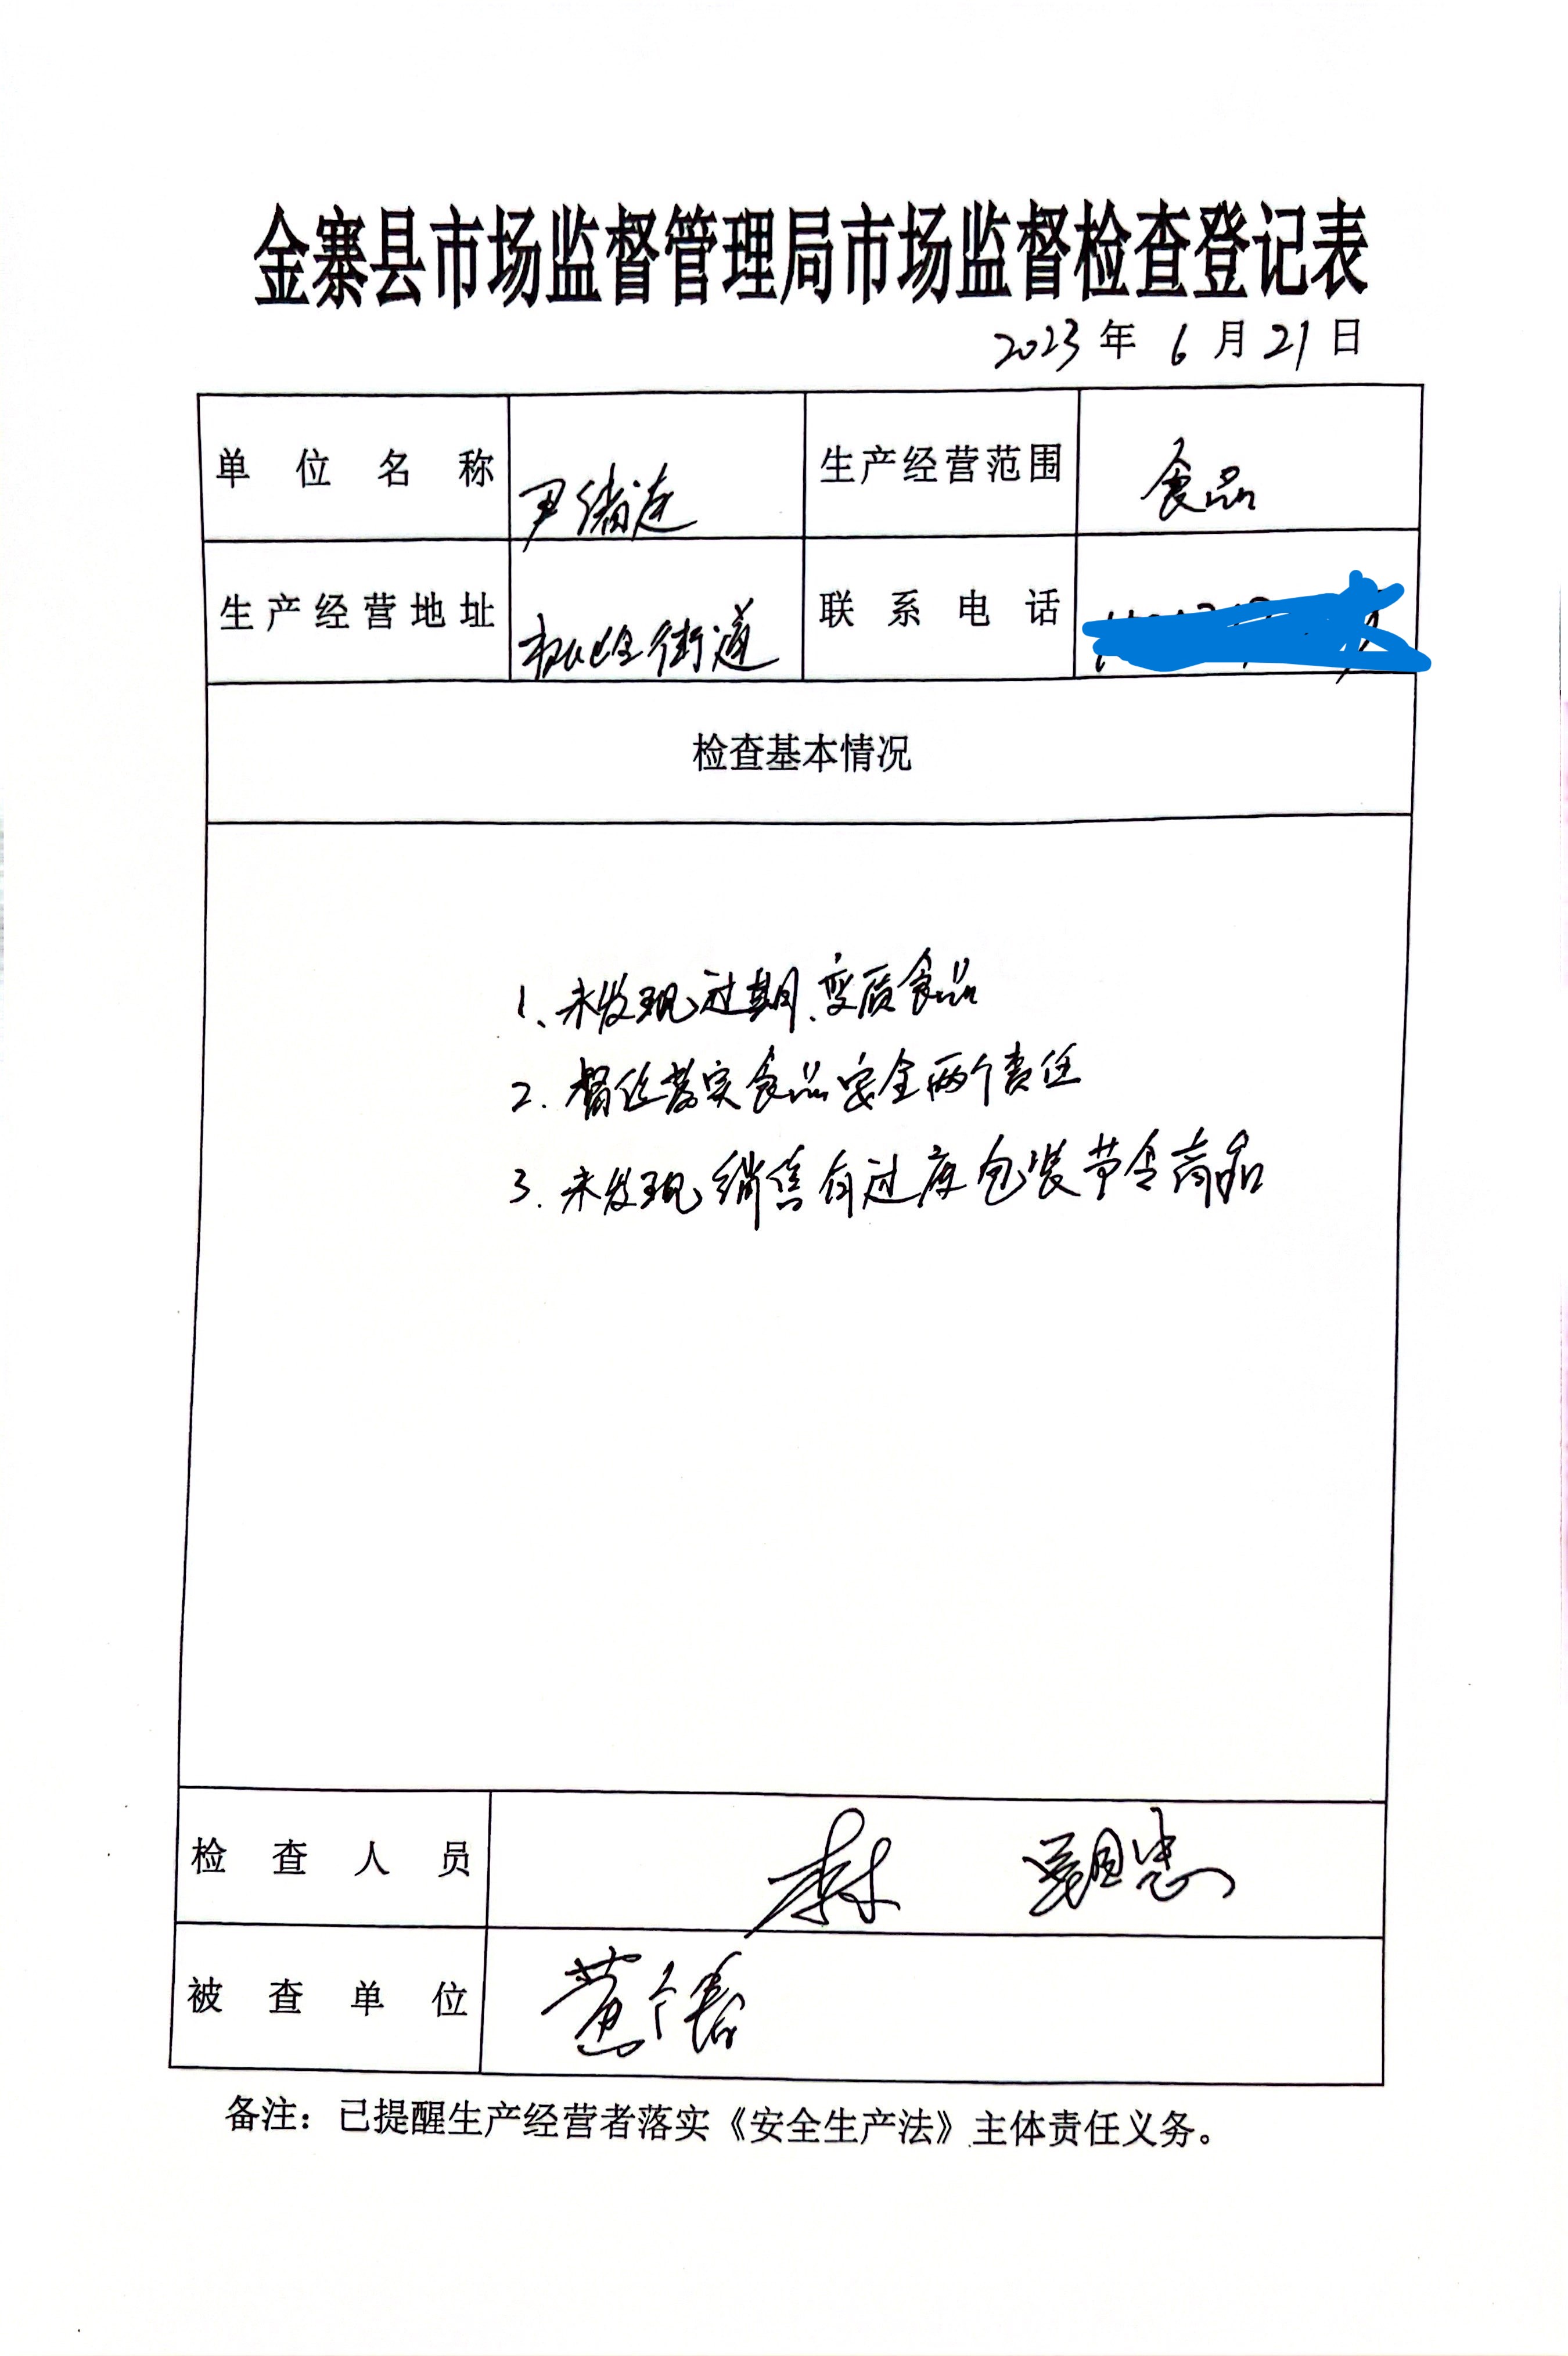 金寨县市场监督管理局市场监督检查登记表
2023年6月21日
单位名称 尹绪连 生产经营范围 食品
生产经营地址 街道 联系电话
检查基本情况
1、未发现过期、变质食品
2. 督促落实食品安全两个责任
3. 未发现销售有过度包装节令商品
检查人员
被查单位
备注：已提醒生产经营者落实《安全生产法》主体责任义务。